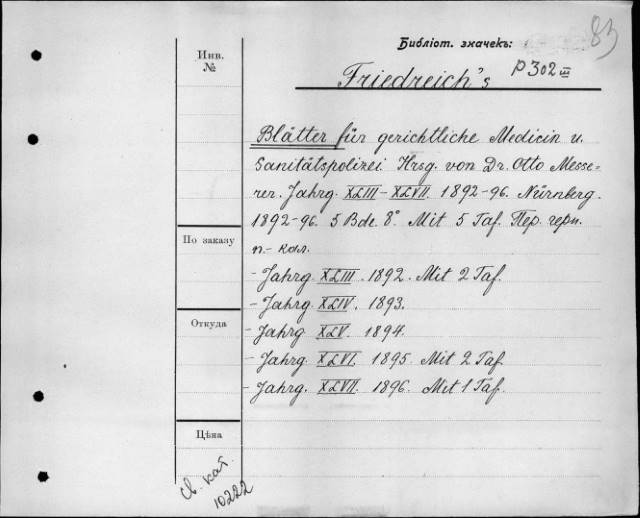 83
Библіот. значекъ:
P302 III
Friedreich's
Инв.
№
Blätter für gerichtliche Medicin u.
Sanitätspolizei Hrsg. von Dr. Otto Messe=
rer. Jahrg. XLIII-XLVII. 1892-96. Nürnberg.
1892-96. 5 Bde. 8° Mit 5 Taf. Пер. черн.
п.-кол.
- Jahrg. XLIII. 1892. Mit 2 Taf.
- Jahrg. XLIV. 1893.
- Jahrg XLV. 1894.
- Jahrg. XLVI. 1895 Mit 2 Taf.
- Jahrg. XLVII. 1896. Mit 1 Taf.
По заказу
Откуда
Цѣна
св. кат.
10222